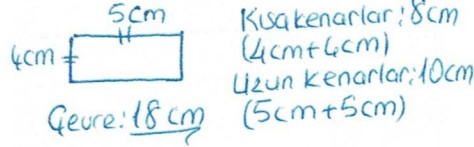 5cm
4cm
Çevre: 18 cm
Kısa kenarlar: 8cm
(4cm+4cm)
Uzun kenarlar: 10cm
(5cm+5cm)